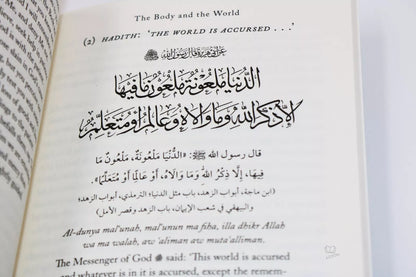 The Body and the World
(2) HADITH: 'THE WORLD IS ACCURSED . . .'
عن أبي هريرة قال رسول الله ﷺ
الدنيا ملعونة ملعون ما فيها
إلا ذكر الله وما والاه وعالما أو متعلما
قال رسول الله ﷺ: «الدُّنْيَا مَلْعُونَةٌ، مَلْعُونٌ مَا
فِيهَا، إِلَّا ذِكْرُ اللَّهِ وَمَا وَالَاهُ، أَوْ عَالِمًا أَوْ مُتَعَلِّمًا»
(ابن ماجة، أبواب الزهد، باب مثل الدنيا؛ الترمذي، أبواب الزهد؛
والبيهقي في شعب الإيمان، باب الزهد وقصر الأمل)
Al-dunya mal'unah, mal'unun ma fiha, illa dhikr Allah
wa ma walah, aw 'aliman aw muta'alliman.
The Messenger of God ﷺ said: 'This world is accursed
and whatever is in it is accursed, except the remem-